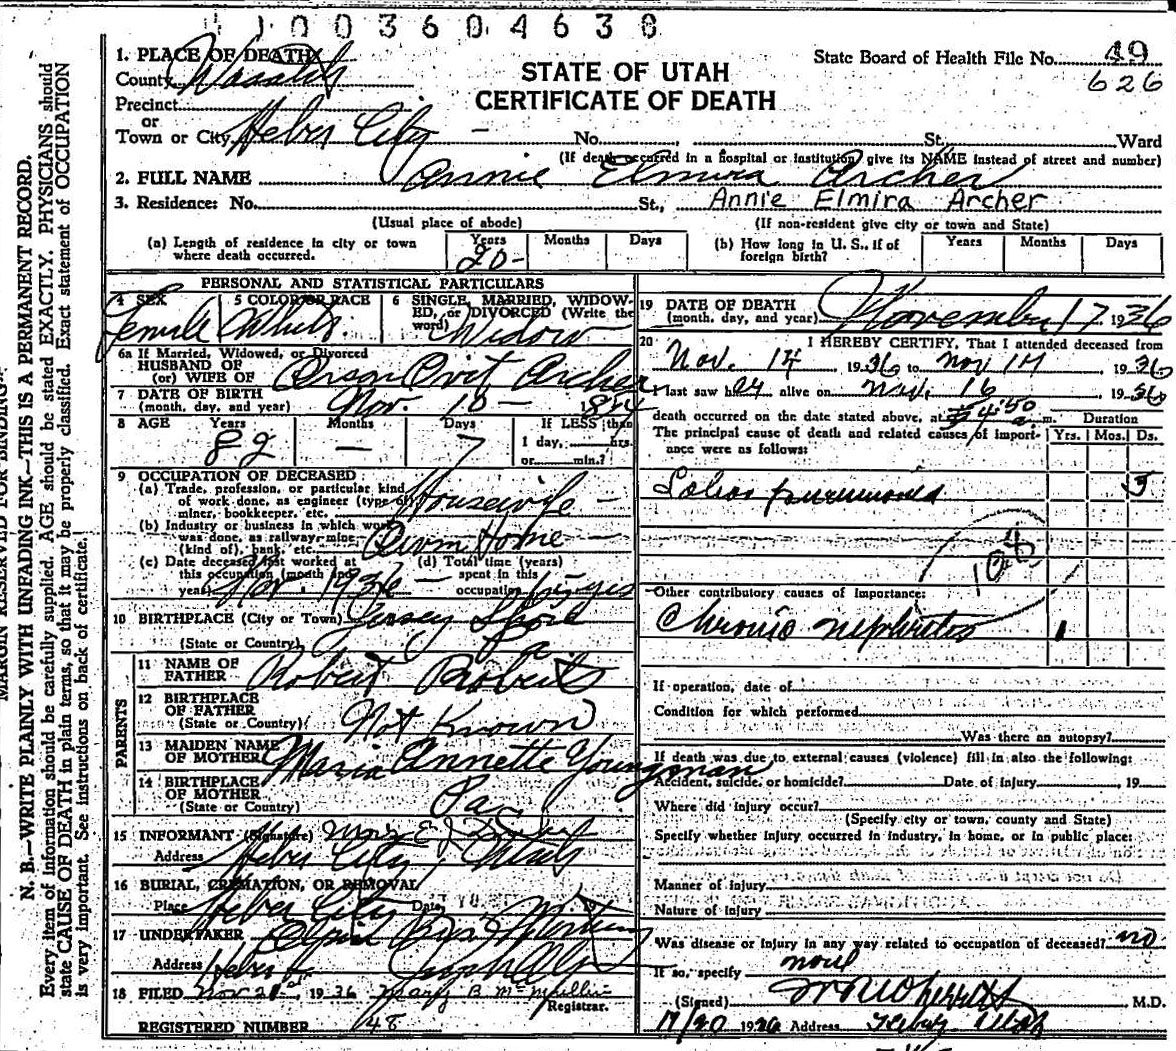 11003604630
1. PLACE OF DEATH
County Wasatch
Precinct
or
Town or City Heber City - No. St. Ward
(If death occurred in a hospital or institution, give its NAME instead of street and number)
STATE OF UTAH
CERTIFICATE OF DEATH
State Board of Health File No. 49
626
2. FULL NAME Annie Elmira Archer
3. Residence: No. St., Annie Elmira Archer
(Usual place of abode) (If non-resident give city or town and State)
(a) Length of residence in city or town where death occurred. Years 20- Months Days
(b) How long in U. S., if of foreign birth? Years Months Days
PERSONAL AND STATISTICAL PARTICULARS
4 SEX Female
5 COLOR OR RACE White
6 SINGLE, MARRIED, WIDOWED, or DIVORCED (Write the word) Widow
6a If Married, Widowed, or Divorced
HUSBAND OF
(or) WIFE OF Orson Ovit Archer
7 DATE OF BIRTH
(month, day, and year) Nov. 10 - 1854
8 AGE Years 82 Months — Days 7 If LESS than
1 day, hrs.
or min.?
9 OCCUPATION OF DECEASED
(a) Trade, profession, or particular kind
of work done, as engineer (type of)
miner, bookkeeper, etc. Housewife -
(b) Industry or business in which work
was done, as railway-mine
(kind of), bank, etc. Own Home -
(c) Date deceased last worked at
this occupation (month and
year) Nov. 1936 -
(d) Total time (years)
spent in this
occupation yrs
10 BIRTHPLACE (City or Town) Jersey Shore
(State or Country) Pa
PARENTS
11 NAME OF
FATHER Robert Roberts
12 BIRTHPLACE
OF FATHER
(State or Country) Not Known
13 MAIDEN NAME
OF MOTHER Maria Annette Youngman
14 BIRTHPLACE
OF MOTHER
(State or Country) Pa
15 INFORMANT (Signature)
Address Heber City, Utah
16 BURIAL, CREMATION, OR REMOVAL
Place Heber City Date 19
17 UNDERTAKER Olpin Bros Mortuary
Address Heber
18 FILED Nov 21 1936 Mary B McMullin
Registrar.
REGISTERED NUMBER 48
19 DATE OF DEATH
(month, day, and year) November 17 1936
20 I HEREBY CERTIFY, That I attended deceased from
Nov. 14 1936 to Nov 17 1936
I last saw h er alive on Nov. 16 1936
death occurred on the date stated above, at 4:50 a m.
The principal cause of death and related causes of importance were as follows: Duration Yrs. Mos. Ds.
Lobar pneumonia 5
108
Other contributory causes of importance:
Chronic nephritis 1
If operation, date of
Condition for which performed
Was there an autopsy?
If death was due to external causes (violence) fill in also the following:
Accident, suicide, or homicide? Date of injury , 19
Where did injury occur?
(Specify city or town, county and State)
Specify whether injury occurred in industry, in home, or in public place:
Manner of injury
Nature of injury
Was disease or injury in any way related to occupation of deceased? no
If so, specify none
(Signed) M.D.
11/20 1936 Address Heber Utah
MARGIN RESERVED FOR BINDING
N. B.—WRITE PLAINLY WITH UNFADING INK—THIS IS A PERMANENT RECORD.
Every item of information should be carefully supplied. AGE should be stated EXACTLY. PHYSICIANS should
state CAUSE OF DEATH in plain terms, so that it may be properly classified. Exact statement of OCCUPATION
is very important. See instructions on back of certificate.